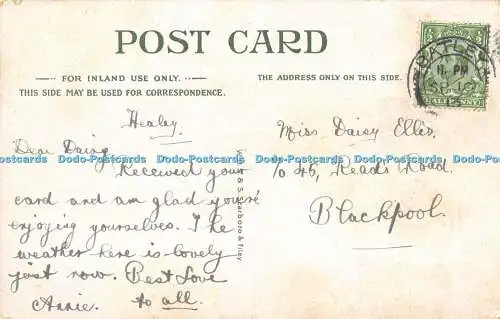 POST CARD
FOR INLAND USE ONLY.
THIS SIDE MAY BE USED FOR CORRESPONDENCE.
THE ADDRESS ONLY ON THIS SIDE.
BATLEY
HALFPENNY
Healey
Dear Daisy,
Received your
card and am glad you're
enjoying yourselves. The
weather here is lovely
just now. Best Love
Annie. to all.
Miss Daisy Ellis.
c/o 45, Reads Road.
Blackpool.
Dodo-Postcards Dodo-Postcards Dodo-Postcards Dodo-Postcards Dodo-Postcards
& S. Scarboro & Filey